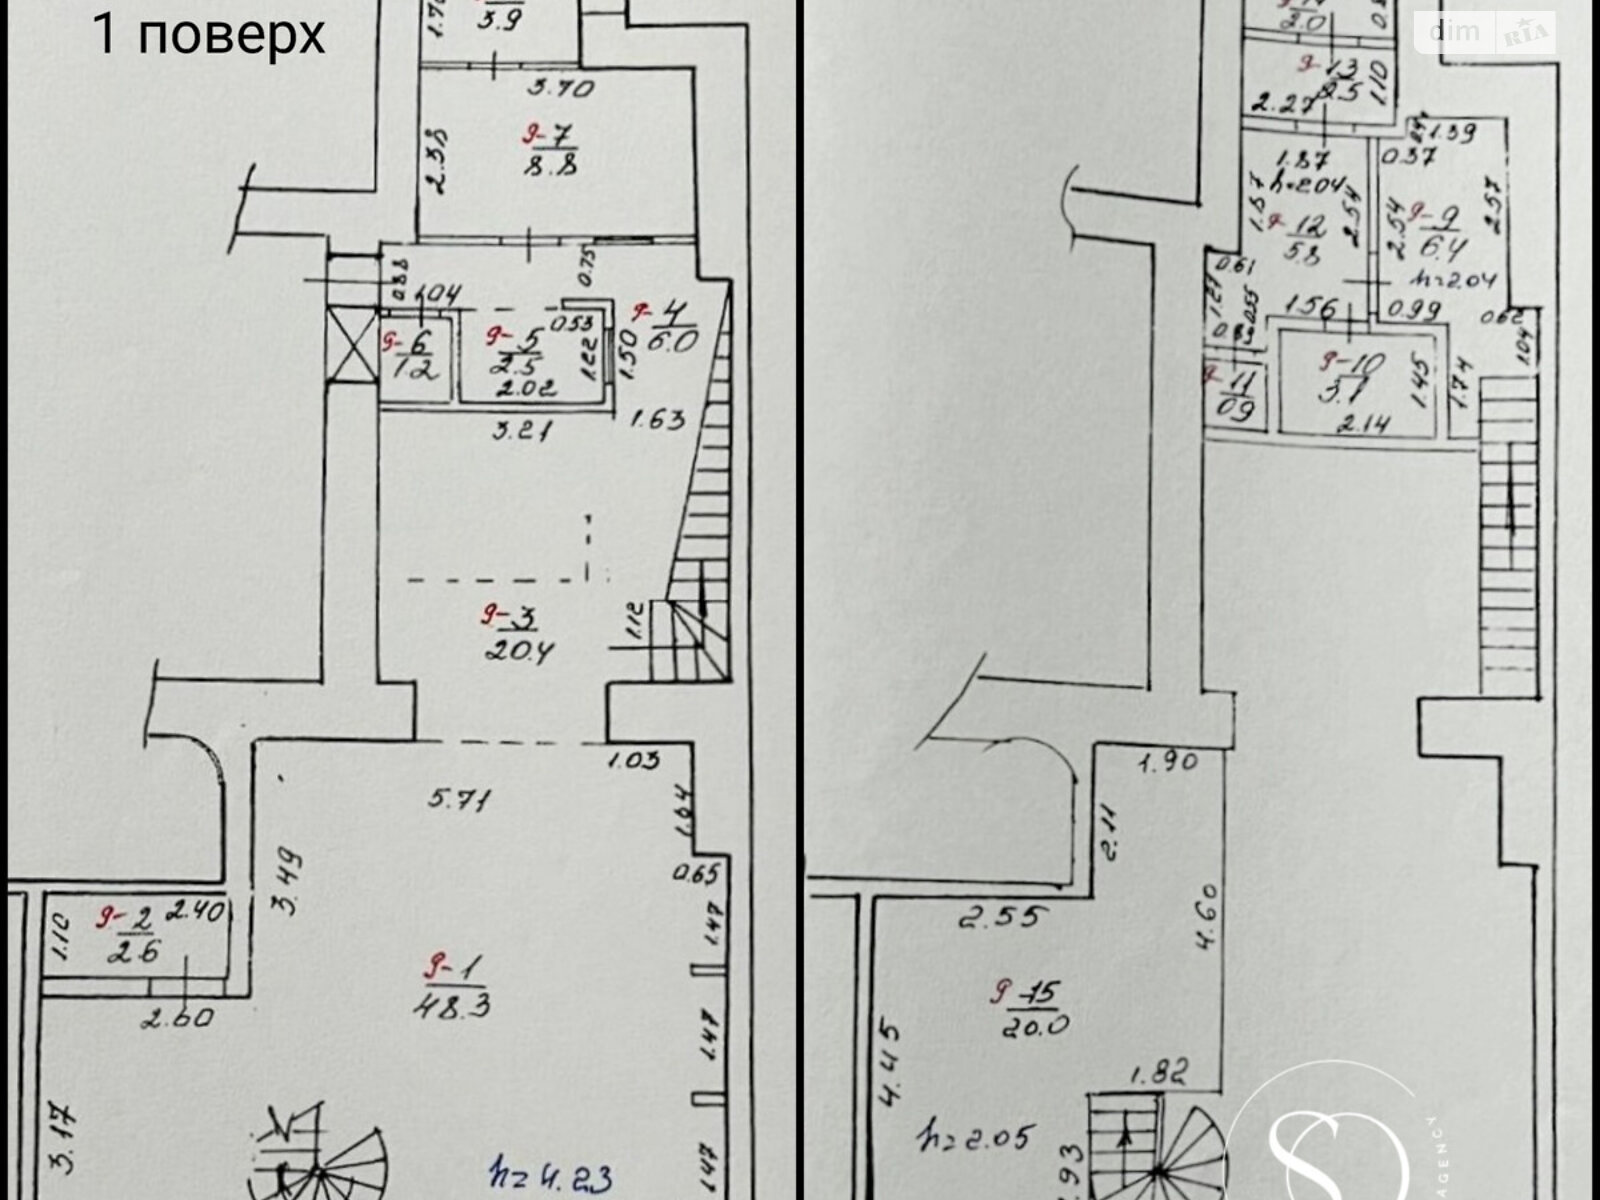 1 поверх
1.70
3.9
3.70
9-7
8.8
2.38
0.88
1.04
0.75
9-4
6.0
0.53
9-6
1.2
9-5
2.5
1.22
1.50
2.02
3.21
1.63
9-3
20.4
1.12
1.03
5.71
1.64
3.49
0.65
9-2
2.6
2.40
1.10
1.47
9-1
48.3
2.60
1.47
3.17
h=4.23
1.47
dim RIA
2.0
9-13
2.5
1.10
2.27
1.39
0.37
1.87
h=2.04
1.57
9-12
5.8
2.54
2.54
9-9
6.4
2.57
h=2.04
0.61
1.21
0.55
1.56
0.99
0.62
1.04
9-10
3.1
1.45
1.74
2.14
9-11
0.9
1.90
2.11
2.55
4.60
9-15
20.0
4.45
1.82
h=2.05
.93
SO
AGENCY